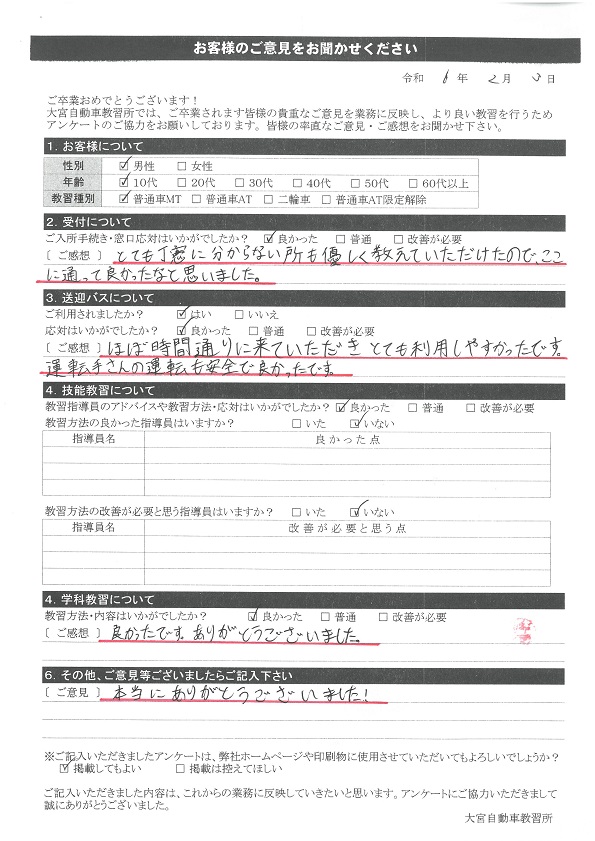 お客様のご意見をお聞かせください
令和 6 年 2 月 3 日
ご卒業おめでとうございます！
大宮自動車教習所では、ご卒業されます皆様の貴重なご意見を業務に反映し、より良い教習を行うため
アンケートのご協力をお願いしております。皆様の率直なご意見・ご感想をお聞かせ下さい。
1. お客様について
性別 ☑ 男性 □ 女性
年齢 ☑ 10代 □ 20代 □ 30代 □ 40代 □ 50代 □ 60代以上
教習種別 ☑ 普通車MT □ 普通車AT □ 二輪車 □ 普通車AT限定解除
2. 受付について
ご入所手続き・窓口応対はいかがでしたか？ ☑ 良かった □ 普通 □ 改善が必要
〔 ご感想 〕 とても丁寧に分からない所も優しく教えていただけたので、ここ
に通って良かったなと思いました。
3. 送迎バスについて
ご利用されましたか？ ☑ はい □ いいえ
応対はいかがでしたか？ ☑ 良かった □ 普通 □ 改善が必要
〔 ご感想 〕 ほぼ時間通りに来ていただき とても利用しやすかったです。
運転手さんの運転も安全で良かったです。
4. 技能教習について
教習指導員のアドバイスや教習方法・応対はいかがでしたか？ ☑ 良かった □ 普通 □ 改善が必要
教習方法の良かった指導員はいますか？ □ いた ☑ いない
指導員名 良かった点
教習方法の改善が必要と思う指導員はいますか？ □ いた ☑ いない
指導員名 改善が必要と思う点
4. 学科教習について
教習方法・内容はいかがでしたか？ ☑ 良かった □ 普通 □ 改善が必要
〔 ご感想 〕 良かったです。ありがとうございました。
6. その他、ご意見等ございましたらご記入下さい
〔 ご意見 〕 本当にありがとうございました！
※ご記入いただきましたアンケートは、弊社ホームページや印刷物に使用させていただいてもよろしいでしょうか？
☑ 掲載してもよい □ 掲載は控えてほしい
ご記入いただきました内容は、これからの業務に反映していきたいと思います。アンケートにご協力いただきまして
誠にありがとうございました。
大宮自動車教習所